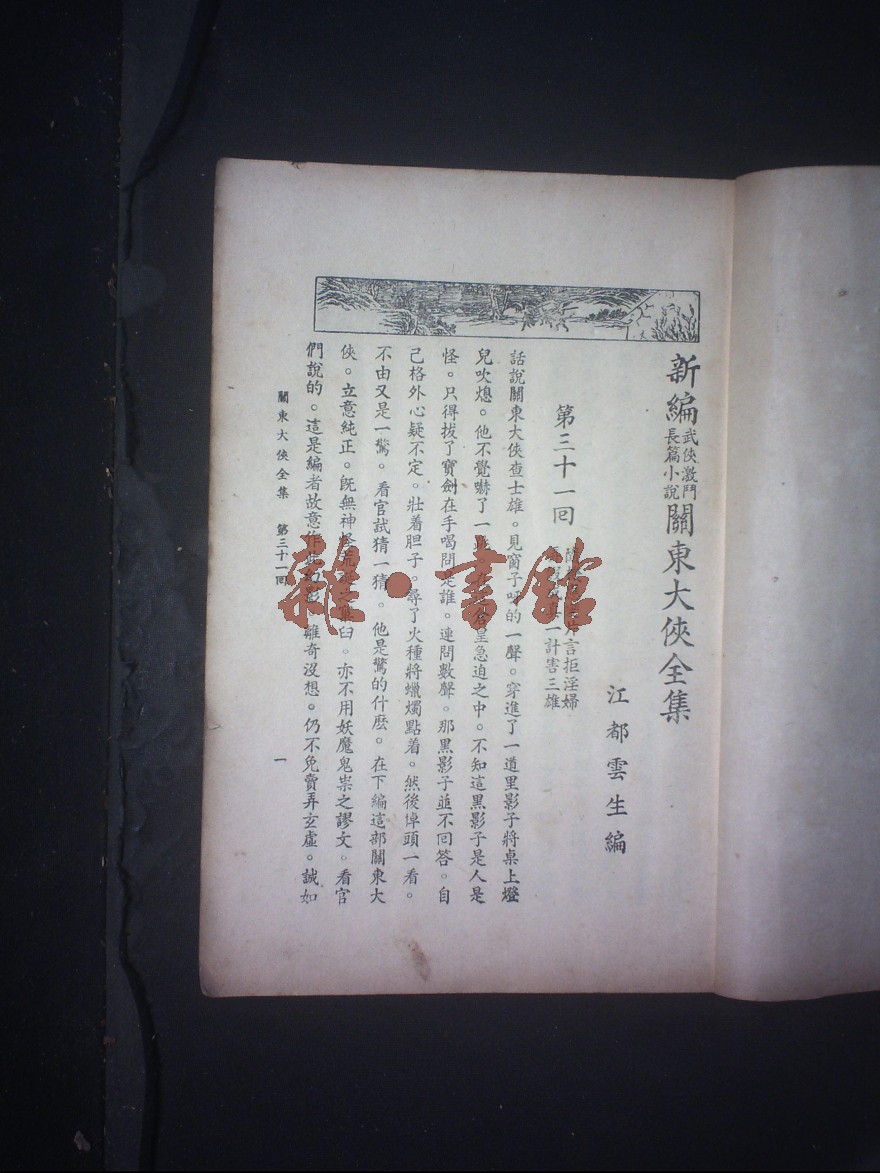 新編武俠激鬥長篇小說關東大俠全集
江都雲生編
第三十一回
言拒淫婦
一計害三雄
話說關東大俠查士雄。見窗子呀的一聲。穿進了一道里影子將桌上燈
兒吹熄。他不覺嚇了一皇急迫之中。不知這黑影子是人是
怪。只得拔了寶劍在手喝問是誰。連問數聲。那黑影子並不回答。自
己格外心疑不定。壯着胆子。尋了火種將蠟燭點着。然後悼頭一看。
不由又是一驚。看官試猜一猜。他是驚的什麽。在下編這部關東大
俠。立意純正。旣無神怪臼。亦不用妖魔鬼祟之謬文。看官
們說的。這是編者故意作離奇沒想。仍不免賣弄玄虛。誠如
關東大俠全集 第三十一回 一
雜·書館